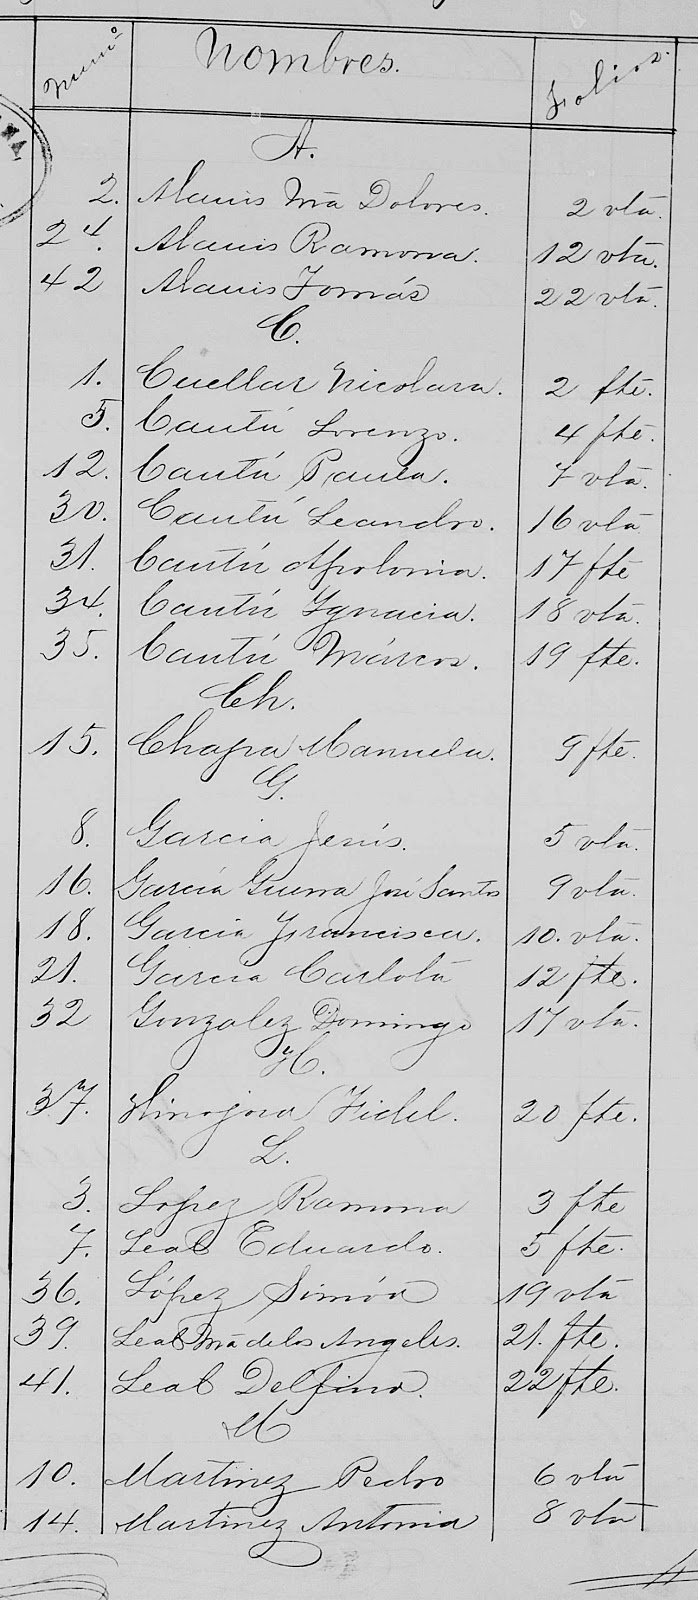 Num.º Nombres. Folios.
A.
2. Alanis Mā Dolores. 2 vta.
24. Alanis Ramona. 12 vta.
42 Alanis Tomás 22 vta.
C.
1. Cuellar Nicolasa. 2 fte.
5. Cantú Lorenzo. 4 fte.
12. Cantú Paula. 7 vta.
30. Cantú Leandro. 16 vta
31. Cantú Apolonia. 17 fte
34. Cantú Ygnacia. 18 vta.
35. Cantú Márcos. 19 fte.
Ch.
15. Chapa Manuela. 9 fte.
G.
8. Garcia Jesús. 5 vta.
16. García Guerra José Santos 9 vta.
18. Garcia Francisca. 10. vta.
21. Garcia Carlota 12 fte.
32 Gonzalez Domingo 17 vta.
H.
37. Hinojosa Fidel. 20 fte.
L.
3. Lopez Ramona 3 fte
7. Leal Eduardo. 5 fte.
36. López Simón 19 vta
39. Leal Mā de los Angeles. 21. fte.
41. Leal Delfino. 22 fte.
M
10. Martinez Pedro 6 vta
14. Martinez Antonia 8 vta